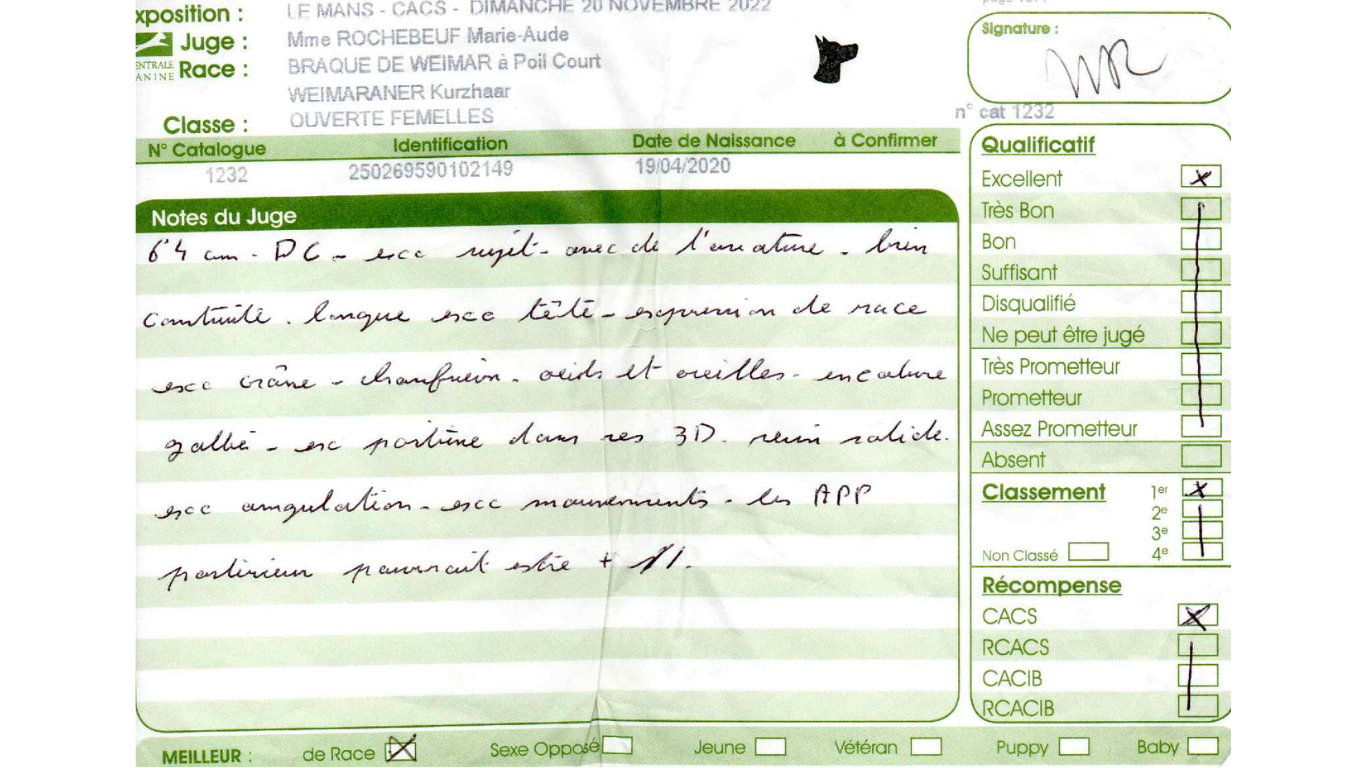 page 1 of 1
xposition : LE MANS - CACS - DIMANCHE 20 NOVEMBRE 2022
Juge : Mme ROCHEBEUF Marie-Aude
ENTRALE
ANINE
Race : BRAQUE DE WEIMAR à Poil Court
WEIMARANER Kurzhaar
Classe : OUVERTE FEMELLES
Signature :
n° cat 1232
N° Catalogue Identification Date de Naissance à Confirmer
1232 250269590102149 19/04/2020
Notes du Juge
64 cm - DC - exc sujet - avec de l'ossature - bien
construite . longue exc tête - expression de race
exc crâne - chanfrein - oeils et oreilles - encolure
galbée - exc poitrine dans ses 3D. rein solide.
exc angulation - exc mouvements - les APP
postérieur pourrait estre + //.
Qualificatif
Excellent x
Très Bon
Bon
Suffisant
Disqualifié
Ne peut être jugé
Très Prometteur
Prometteur
Assez Prometteur
Absent
Classement 1er x
2e
3e
Non Classé 4e
Récompense
CACS x
RCACS
CACIB
RCACIB
MEILLEUR : de Race x Sexe Opposé Jeune Vétéran Puppy Baby